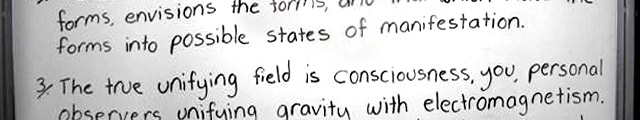 forms, envisions the forms, and
forms into possible states of manifestation.
3. The true unifying field is consciousness, you, personal
observers unifying gravity with electromagnetism.